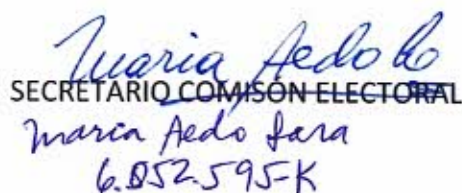 Maria Aedo L
SECRETARIO COMISÓN ELECTORAL
Maria Aedo Lara
6.852.595-K